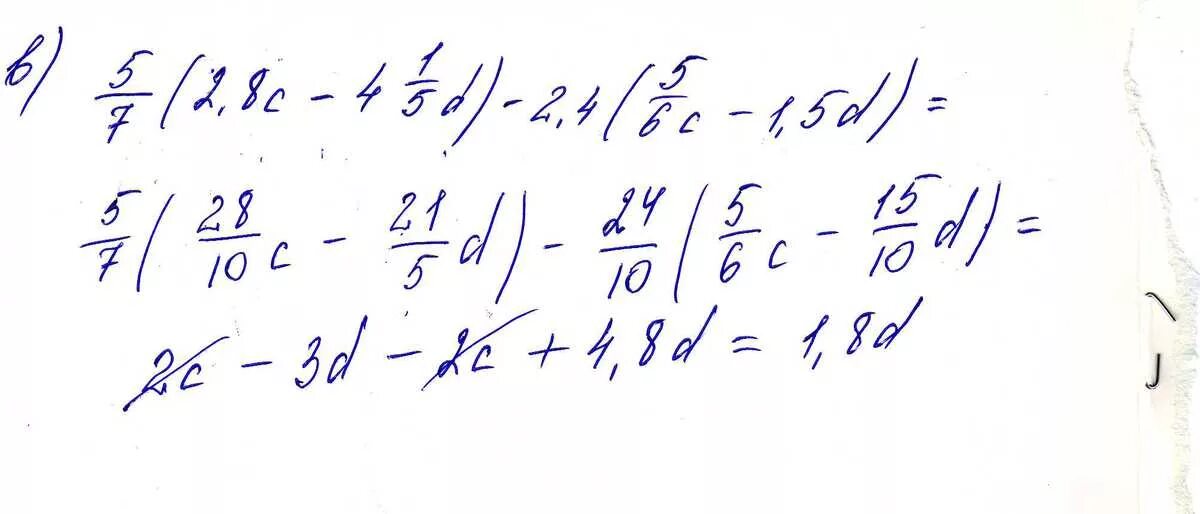 в) 5/7 (2,8c - 4 1/5 d) - 2,4 (5/6 c - 1,5d) =
5/7 (28/10 c - 21/5 d) - 24/10 (5/6 c - 15/10 d) =
2c - 3d - 2c + 4,8d = 1,8d